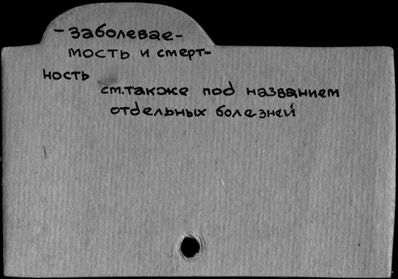 - заболевае-
мость и смерт-
ность
см.также под названием
отдельных болезней